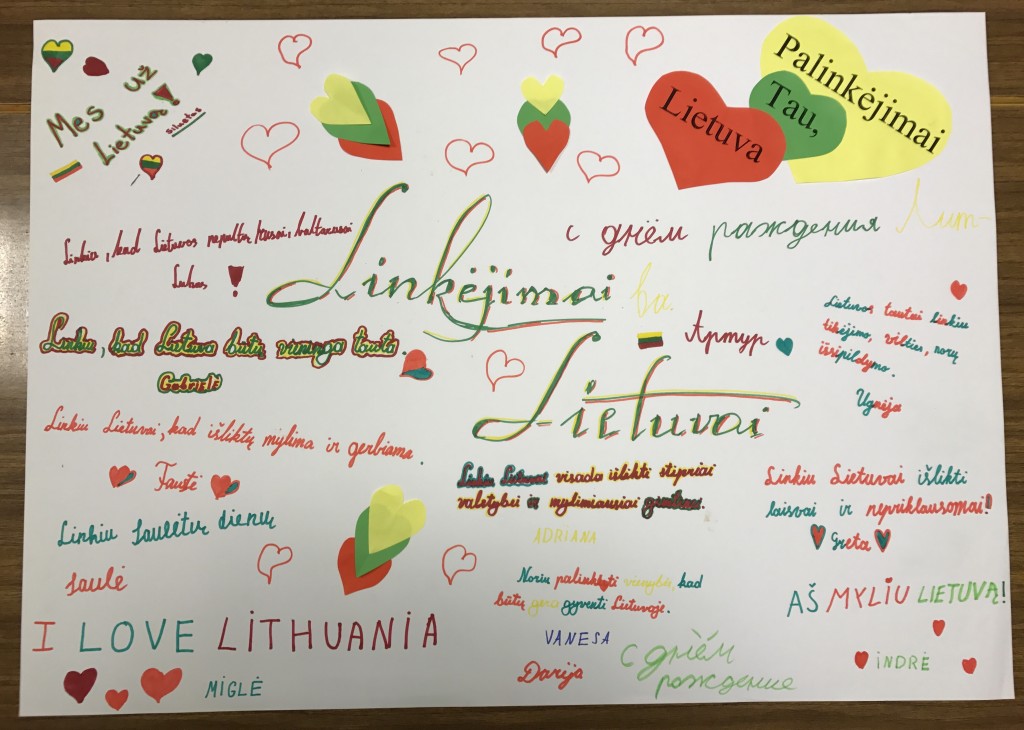 Mes už
Lietuvą!
Palinkėjimai
Tau,
Lietuva
Linkiu, kad Lietuvos nepultų rusai, baltarusai
Lukas !
Linkėjimai
Lietuvai
с днём раждения Лит-
ва.
Артур
Lietuvos tautai linkiu
tikėjimo, vilties, norų
išsipildymo.
Ugnėja
Linkiu, kad Lietuva būtų vieninga tauta.
Gabrielė
Linkiu Lietuvai, kad išliktų mylima ir gerbiama.
Faustė
Linkiu Lietuvai visada išlikti stipriai
valstybei ir mylimiausiai
ADRIANA
Linkiu Lietuvai išlikti
laisvai ir nepriklausomai!
Greta
Linkiu saulėtų dienų
Saulė
Noriu palinkėti vienybės, kad
būtų gera gyventi Lietuvoje.
VANESA
AŠ MYLIU LIETUVĄ!
INDRĖ
I LOVE LITHUANIA
MIGLĖ
Darija
С днём
рождение